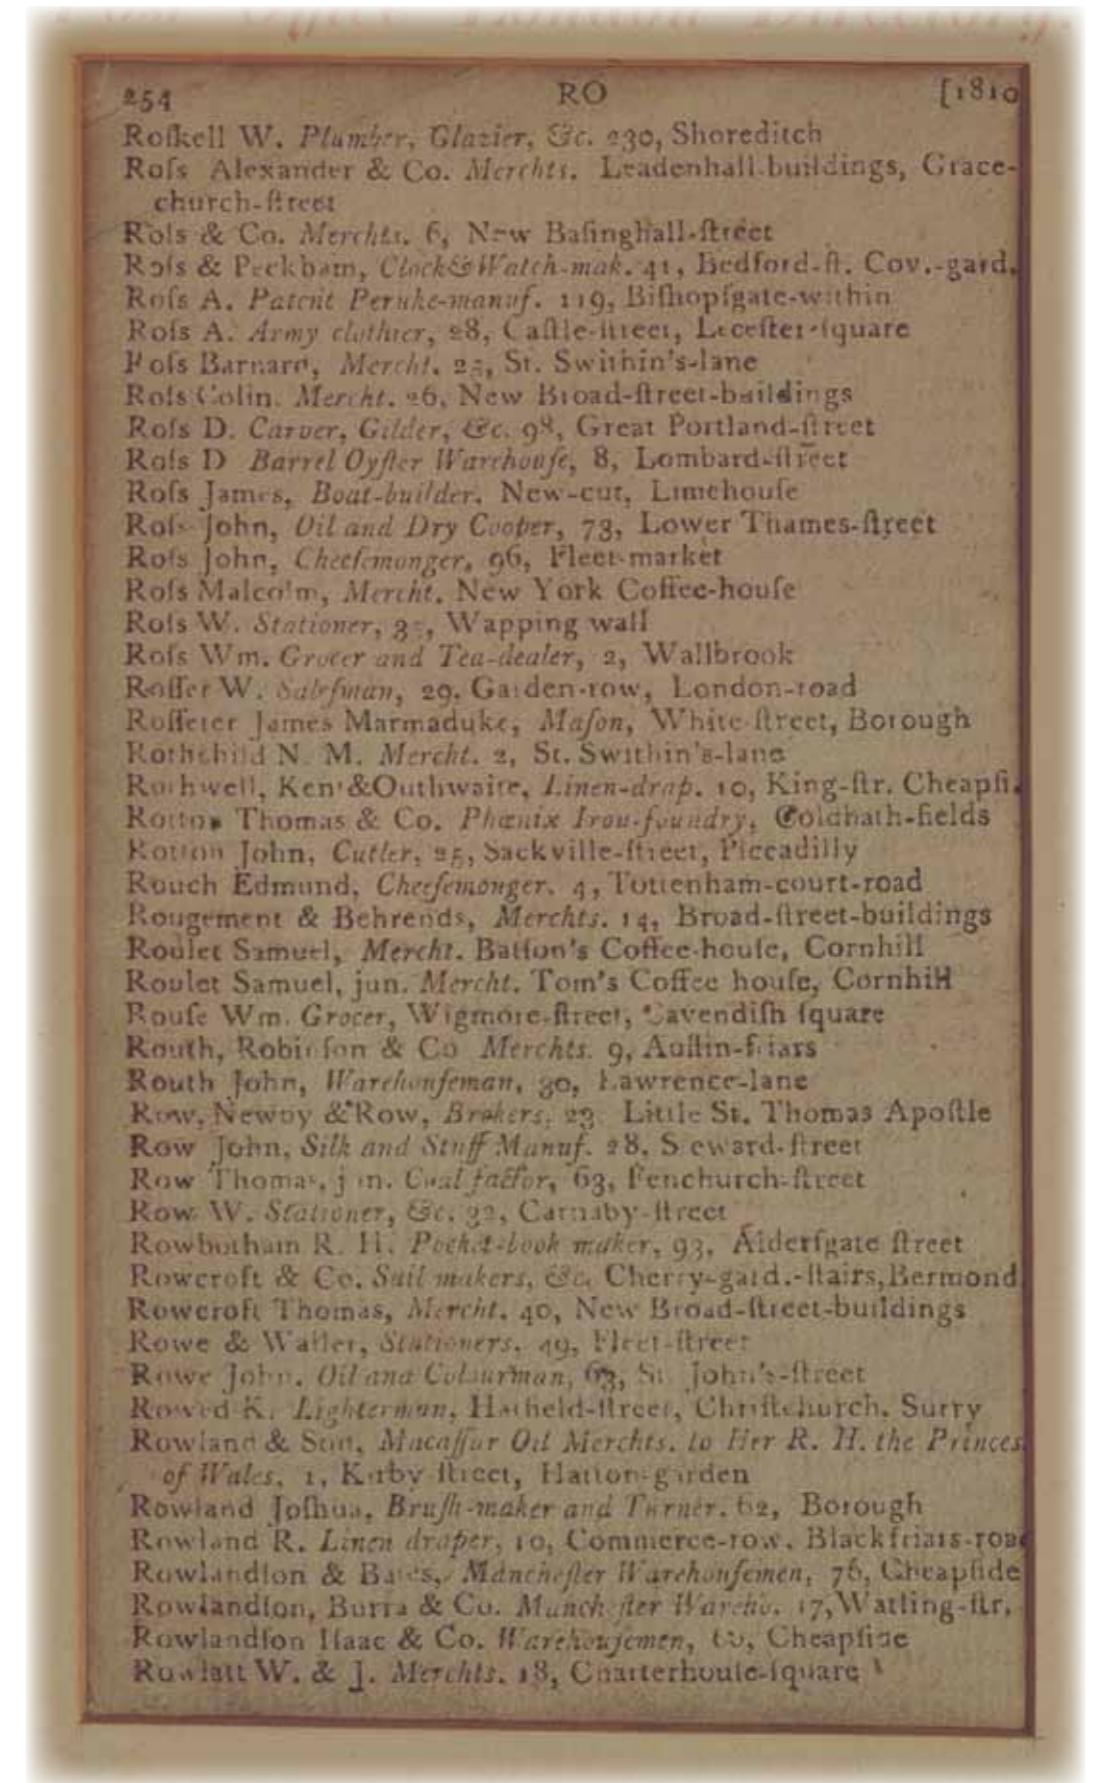 254 RO [1810
Roſkell W. Plumber, Glazier, &c. 230, Shoreditch
Roſs Alexander & Co. Merchts. Leadenhall-buildings, Grace-
church-ſtreet
Roſs & Co. Merchts. 6, New Baſinghall-ſtreet
Roſs & Peckham, Clock & Watch-mak. 41, Bedford-ſt. Cov.-gard.
Roſs A. Patent Peruke-manuf. 119, Biſhopſgate-within
Roſs A. Army clothier, 28, Caſtle-ſtreet, Leceſter-ſquare
Roſs Barnard, Mercht. 25, St. Swithin's-lane
Roſs Colin, Mercht. 26, New Broad-ſtreet-buildings
Roſs D. Carver, Gilder, &c. 98, Great Portland-ſtreet
Roſs D Barrel Oyſter Warehouſe, 8, Lombard-ſtreet
Roſs James, Boat-builder, New-cut, Limehouſe
Roſs John, Oil and Dry Cooper, 73, Lower Thames-ſtreet
Roſs John, Cheeſemonger, 96, Fleet-market
Roſs Malcolm, Mercht. New York Coffee-houſe
Roſs W. Stationer, Wapping wall
Roſs Wm. Grocer and Tea-dealer, 2, Wallbrook
Roſſer W. Saleſman, 29, Garden-row, London-road
Roſſeter James Marmaduke, Maſon, White-ſtreet, Borough
Rothchild N. M. Mercht. 2, St. Swithin's-lane
Rothwell, Kent & Outhwaite, Linen-drap. 10, King-ſtr. Cheapſi.
Rotton Thomas & Co. Phœnix Iron-foundry, Coldbath-fields
Rotton John, Cutler, 25, Sackville-ſtreet, Piccadilly
Rouch Edmund, Cheeſemonger, 4, Tottenham-court-road
Rougement & Behrends, Merchts. 14, Broad-ſtreet-buildings
Roulet Samuel, Mercht. Batſon's Coffee-houſe, Cornhill
Roulet Samuel, jun. Mercht. Tom's Coffee houſe, Cornhill
Rouſe Wm. Grocer, Wigmore-ſtreet, Cavendiſh ſquare
Routh, Robinſon & Co Merchts. 9, Auſtin-friars
Routh John, Warehouſeman, 30, Lawrence-lane
Row, Newby & Row, Brokers, 23 Little St. Thomas Apoſtle
Row John, Silk and Stuff Manuf. 28, Steward-ſtreet
Row Thomas, jun. Coal factor, 63, Fenchurch-ſtreet
Row W. Stationer, &c. 32, Carnaby-ſtreet
Rowbotham R. H. Pocket-book maker, 93, Alderſgate ſtreet
Rowcroft & Co. Sail makers, &c. Cherry-gard.-ſtairs, Bermond
Rowcroft Thomas, Mercht. 40, New Broad-ſtreet-buildings
Rowe & Waller, Stationers, 49, Fleet-ſtreet
Rowe John, Oil and Colourman, 63, St. John's-ſtreet
Rowed K. Lighterman, Hatfield-ſtreet, Chriſtchurch, Surry
Rowland & Son, Macaſſar Oil Merchts. to Her R. H. the Princes
of Wales, 1, Kirby ſtreet, Hatton-garden
Rowland Joſhua, Bruſh-maker and Turner, 62, Borough
Rowland R. Linen draper, 10, Commerce-row, Blackfriars-road
Rowlandſon & Bates, Mancheſter Warehouſemen, 76, Cheapſide
Rowlandſon, Burra & Co. Mancheſter Wareho. 17, Watling-ſtr.
Rowlandſon Iſaac & Co. Warehouſemen, Cheapſide
Rowlatt W. & J. Merchts. 18, Charterhouſe-ſquare